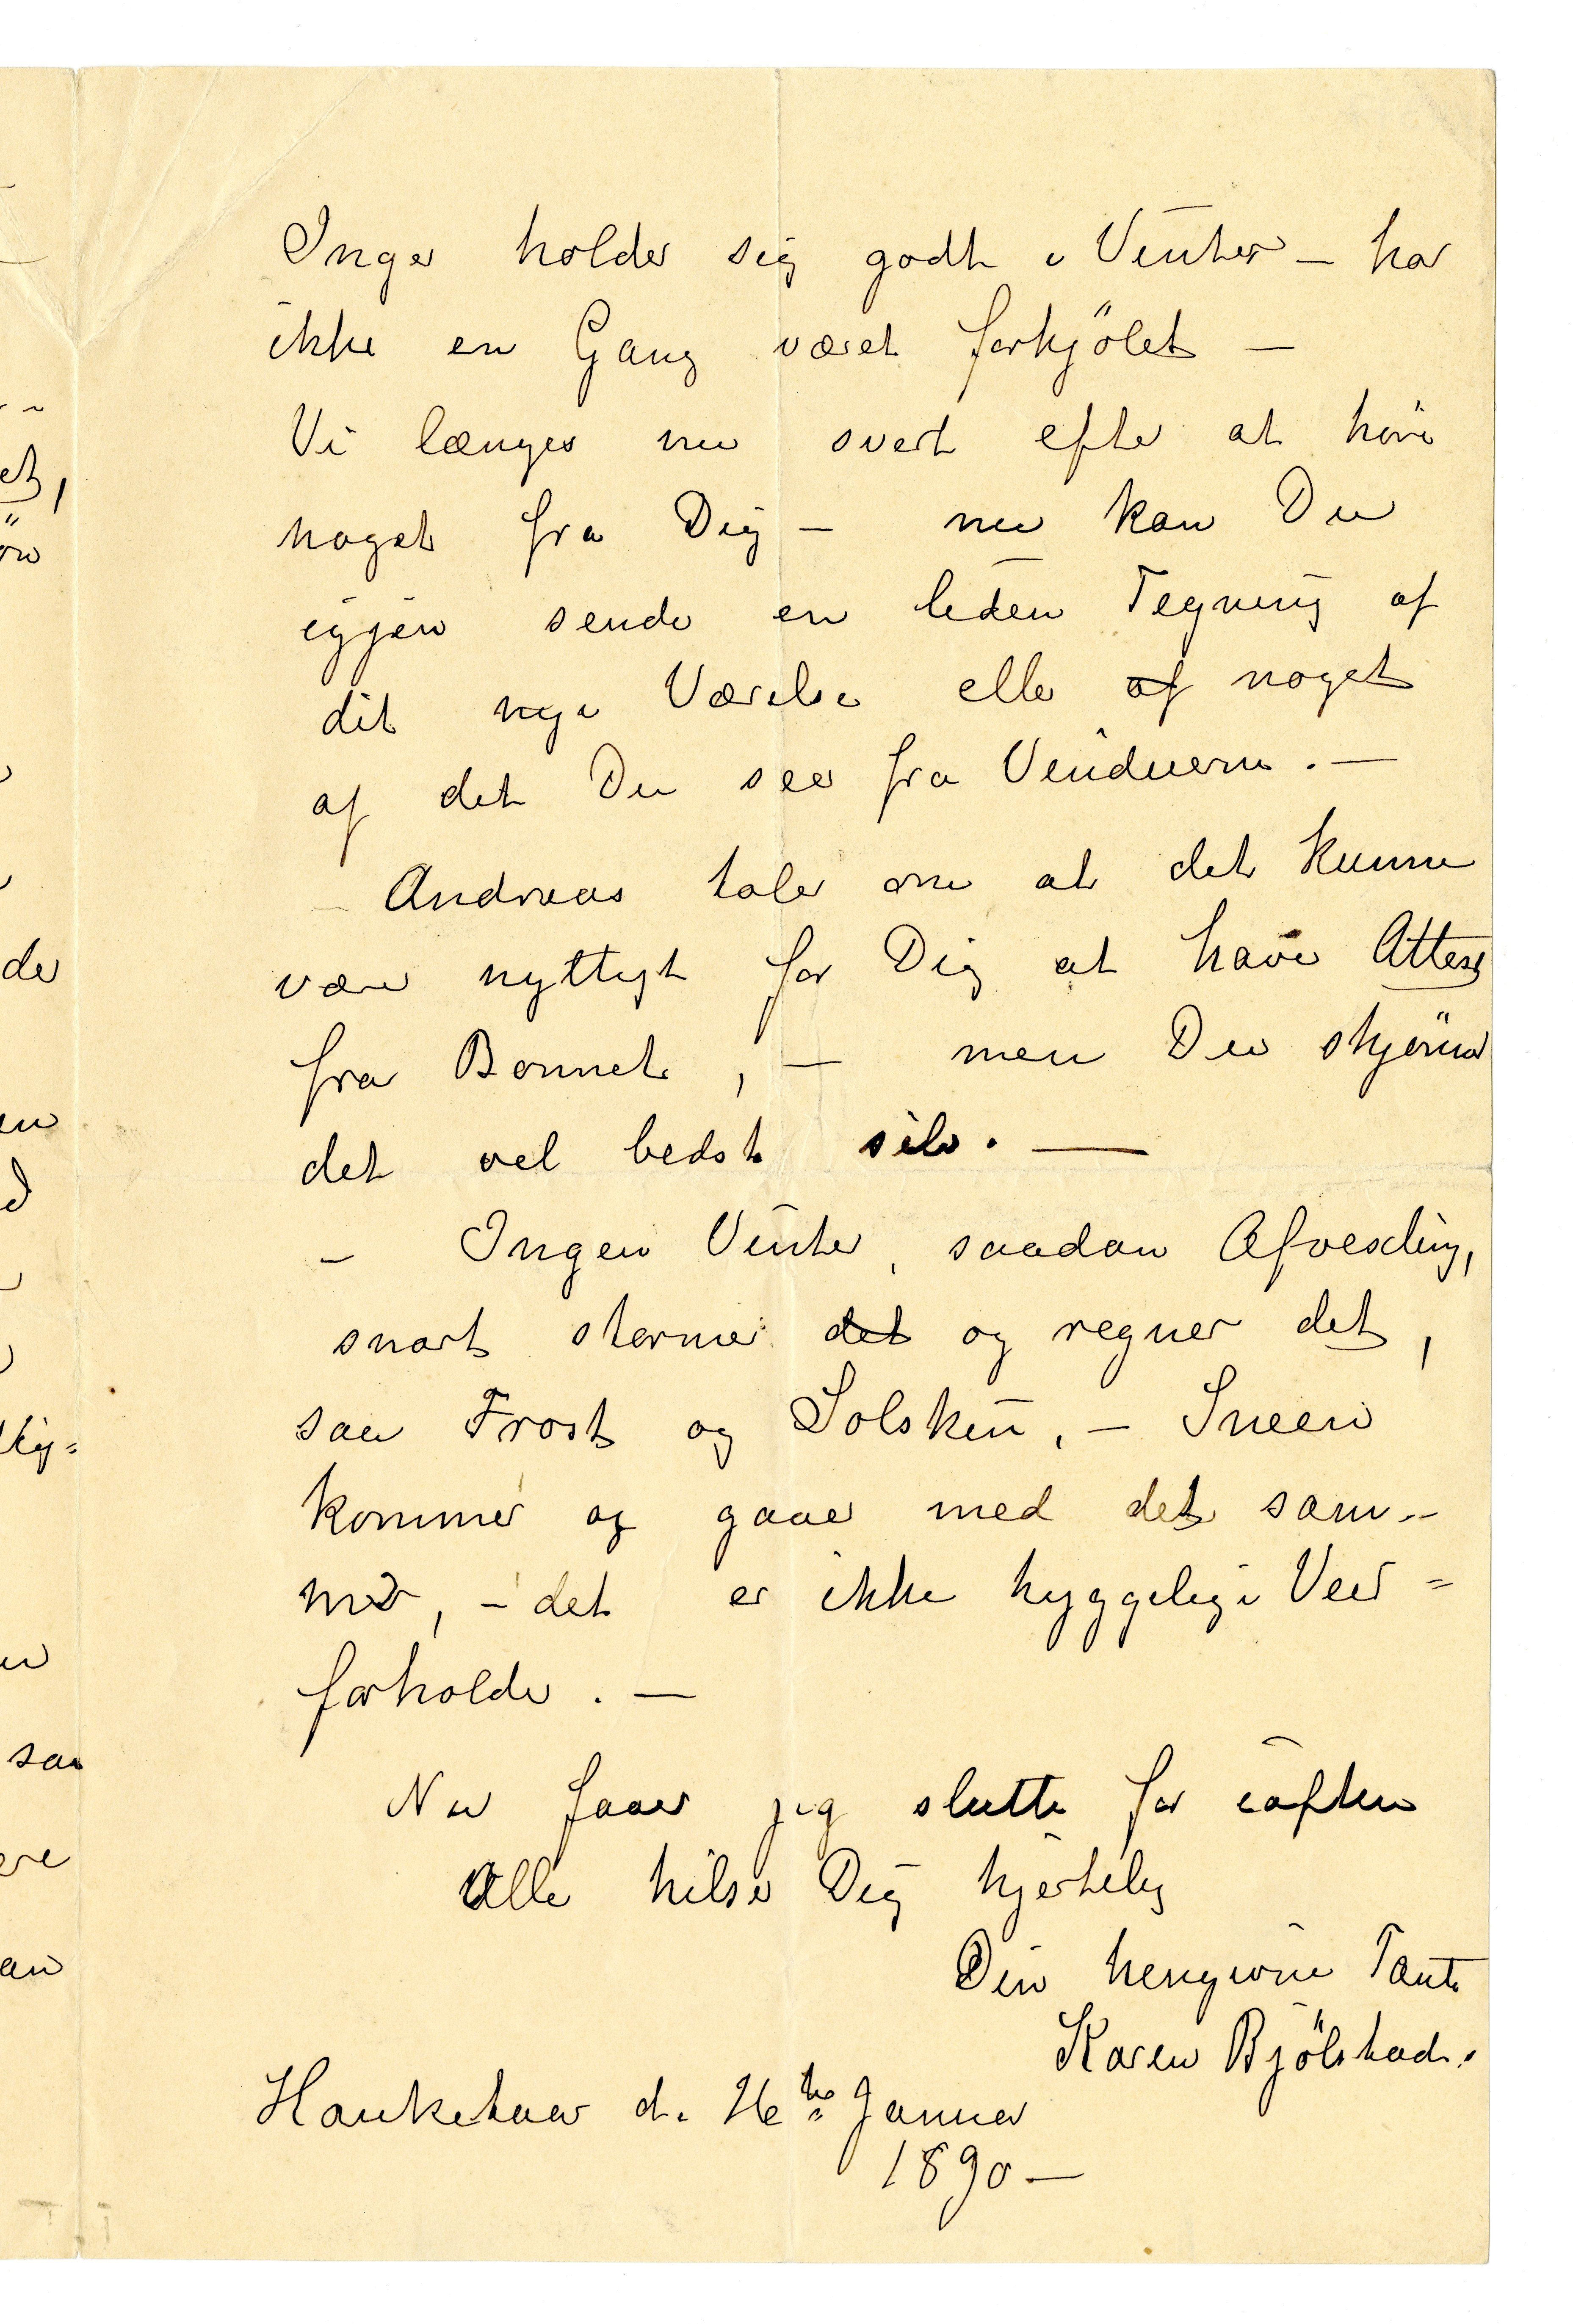 Inger holder sig godt i Vinter – har
ikke en Gang været forkjölet –
Vi længes nu svert efter at höre
noget fra Dig – nu kan Du
igjen sende en liden Tegning af
dit nye Værelse eller af noget
af det Du seer fra Vinduerne. –
– Andreas taler om at det kunne
være nyttigt for Dig at have Attest
fra Bonnet, – men Du skjönner
det vel bedst selv. —
– Ingen Vinter, saadan Afvexling,
snart stormer det og regner det,
saa Frost og Solskin, – Sneen
kommer og gaaer med det sam-
me, – det er ikke hyggelige Veir=
forholde. –
Nu faaer jeg slutte for iaften
Alle hilser Dig hjertelig
Din hengivne Tante
Karen Bjölstad.
Hauketoe d. 26te Januar
1890 –
et,
de
en
saa